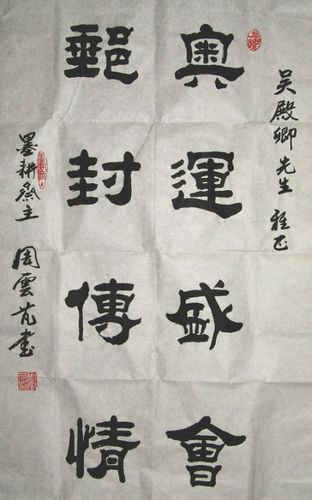 吴殿卿先生雅正
奥運盛會
郵封傳情
墨耕斋主 周雲芃書